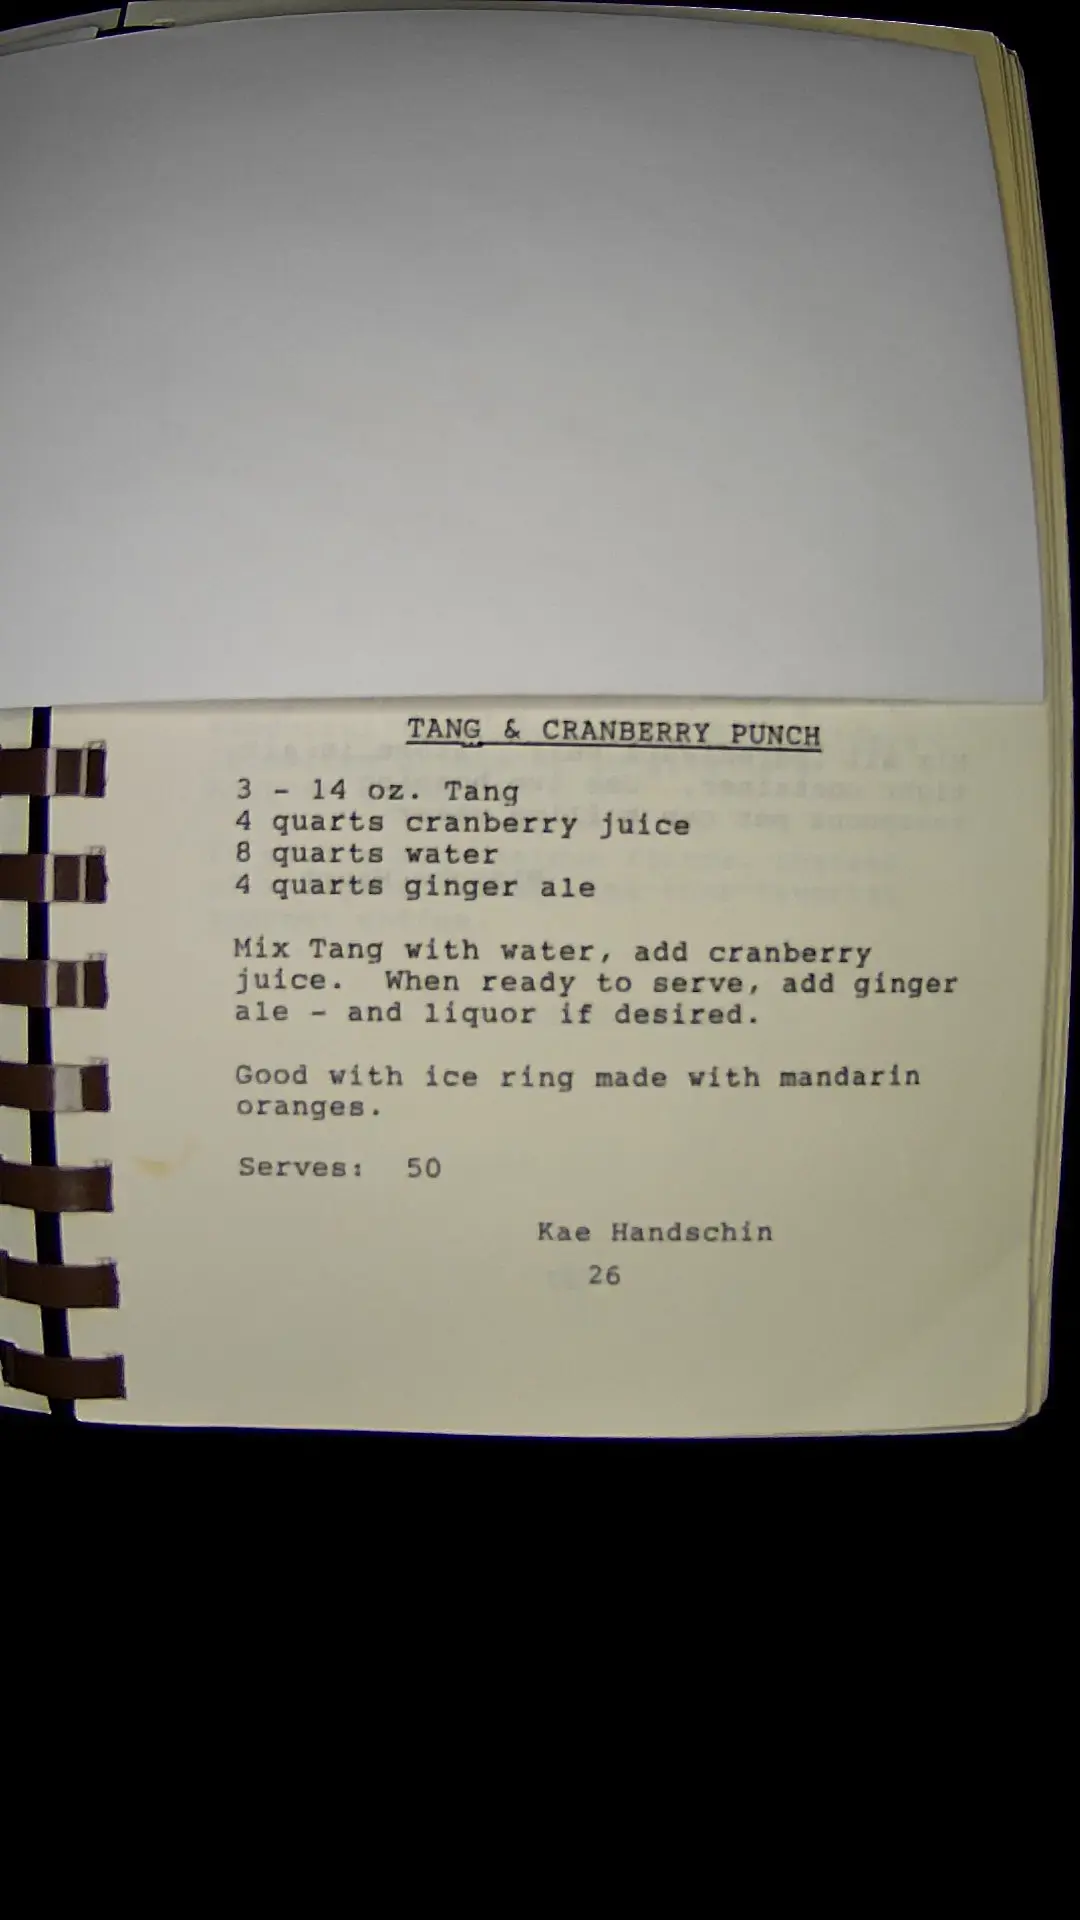 TANG & CRANBERRY PUNCH
3 - 14 oz. Tang
4 quarts cranberry juice
8 quarts water
4 quarts ginger ale
Mix Tang with water, add cranberry
juice.  When ready to serve, add ginger
ale - and liquor if desired.
Good with ice ring made with mandarin
oranges.
Serves:  50
Kae Handschin
26